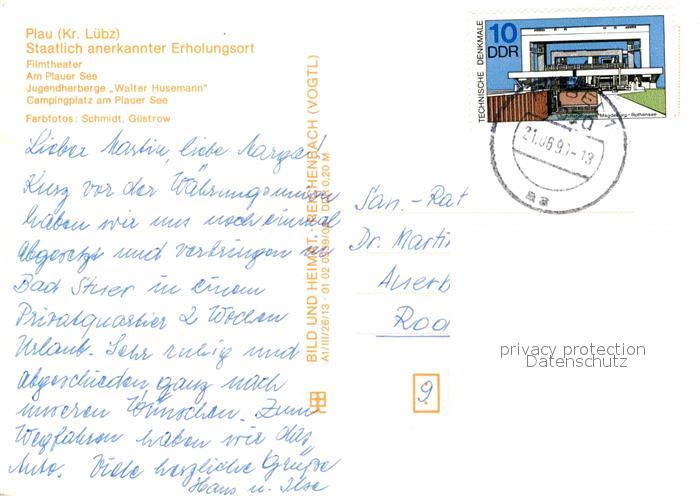 Plau (Kr. Lübz)
Staatlich anerkannter Erholungsort
Filmtheater
Am Plauer See
Jugendherberge „Walter Husemann"
Campingplatz am Plauer See
Farbfotos: Schmidt, Güstrow
Lieber Martin, liebe Margret
Kurz vor der Währungsunion
haben wir uns noch einmal
abgesetzt und verbringen in
Bad Stuer in einem
Privatquartier 2 Wochen
Urlaub. Sehr ruhig und
abgeschieden, ganz nach
unseren Wünschen. Zum
Wegfahren haben wir das
Auto. Viele herzliche Grüße
Hans u. Ilse
BILD UND HEIMAT, REICHENBACH (VOGTL)
A1/III/26/13 01 02 DDR 0,20 M
TECHNISCHE DENKMALE
10
DDR
Magdeburg-Rothensee
21.06.90-13
aa
San.-Rat
Dr. Martin
Auerb
Rod
9
privacy protection
Datenschutz